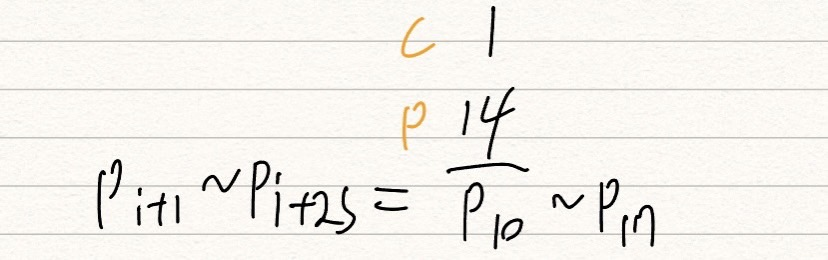 C 1
P 14
P_{i+1} ~ P_{i+25} = P_{10} ~ P_{17}